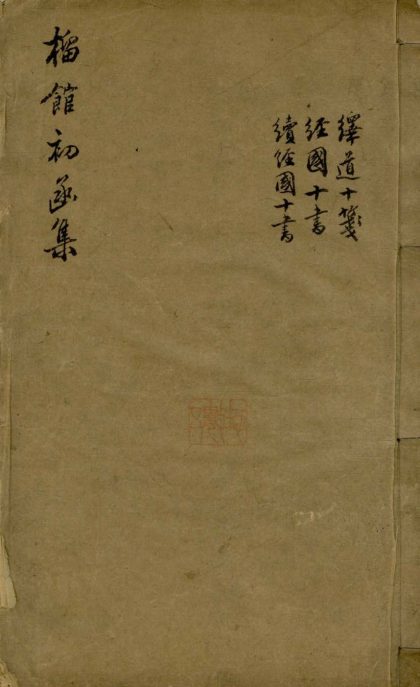 繹道十箋
經國十書
續經國十書
榴館初函集